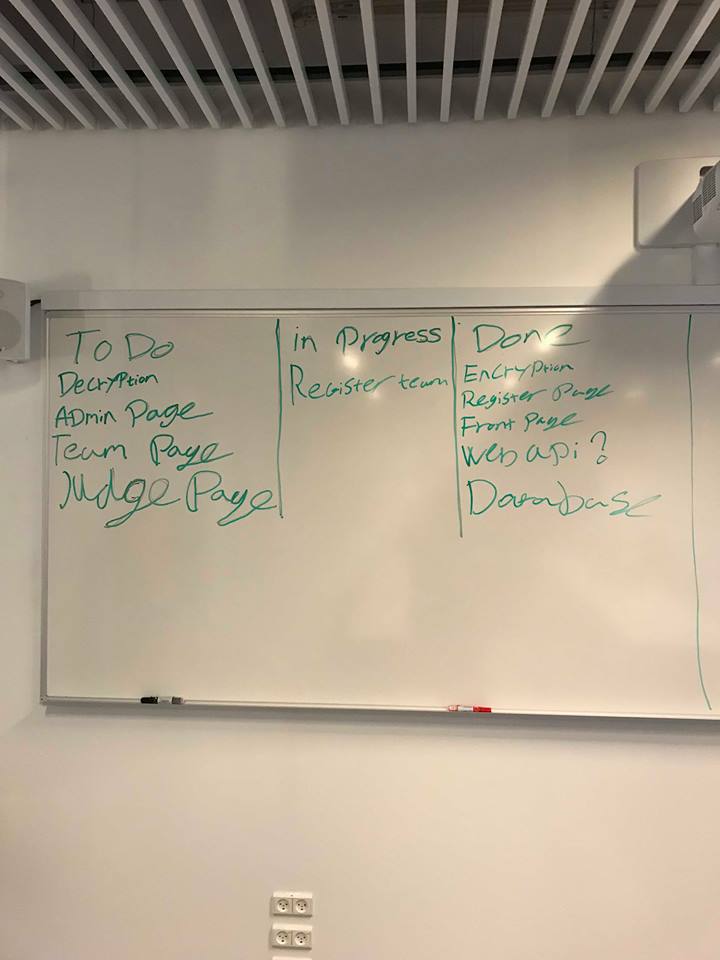 To Do
Decryption
Admin Page
Team Page
Judge Page
in Progress
Register team
Done
Encryption
Register Page
Front Page
Web api?
Database